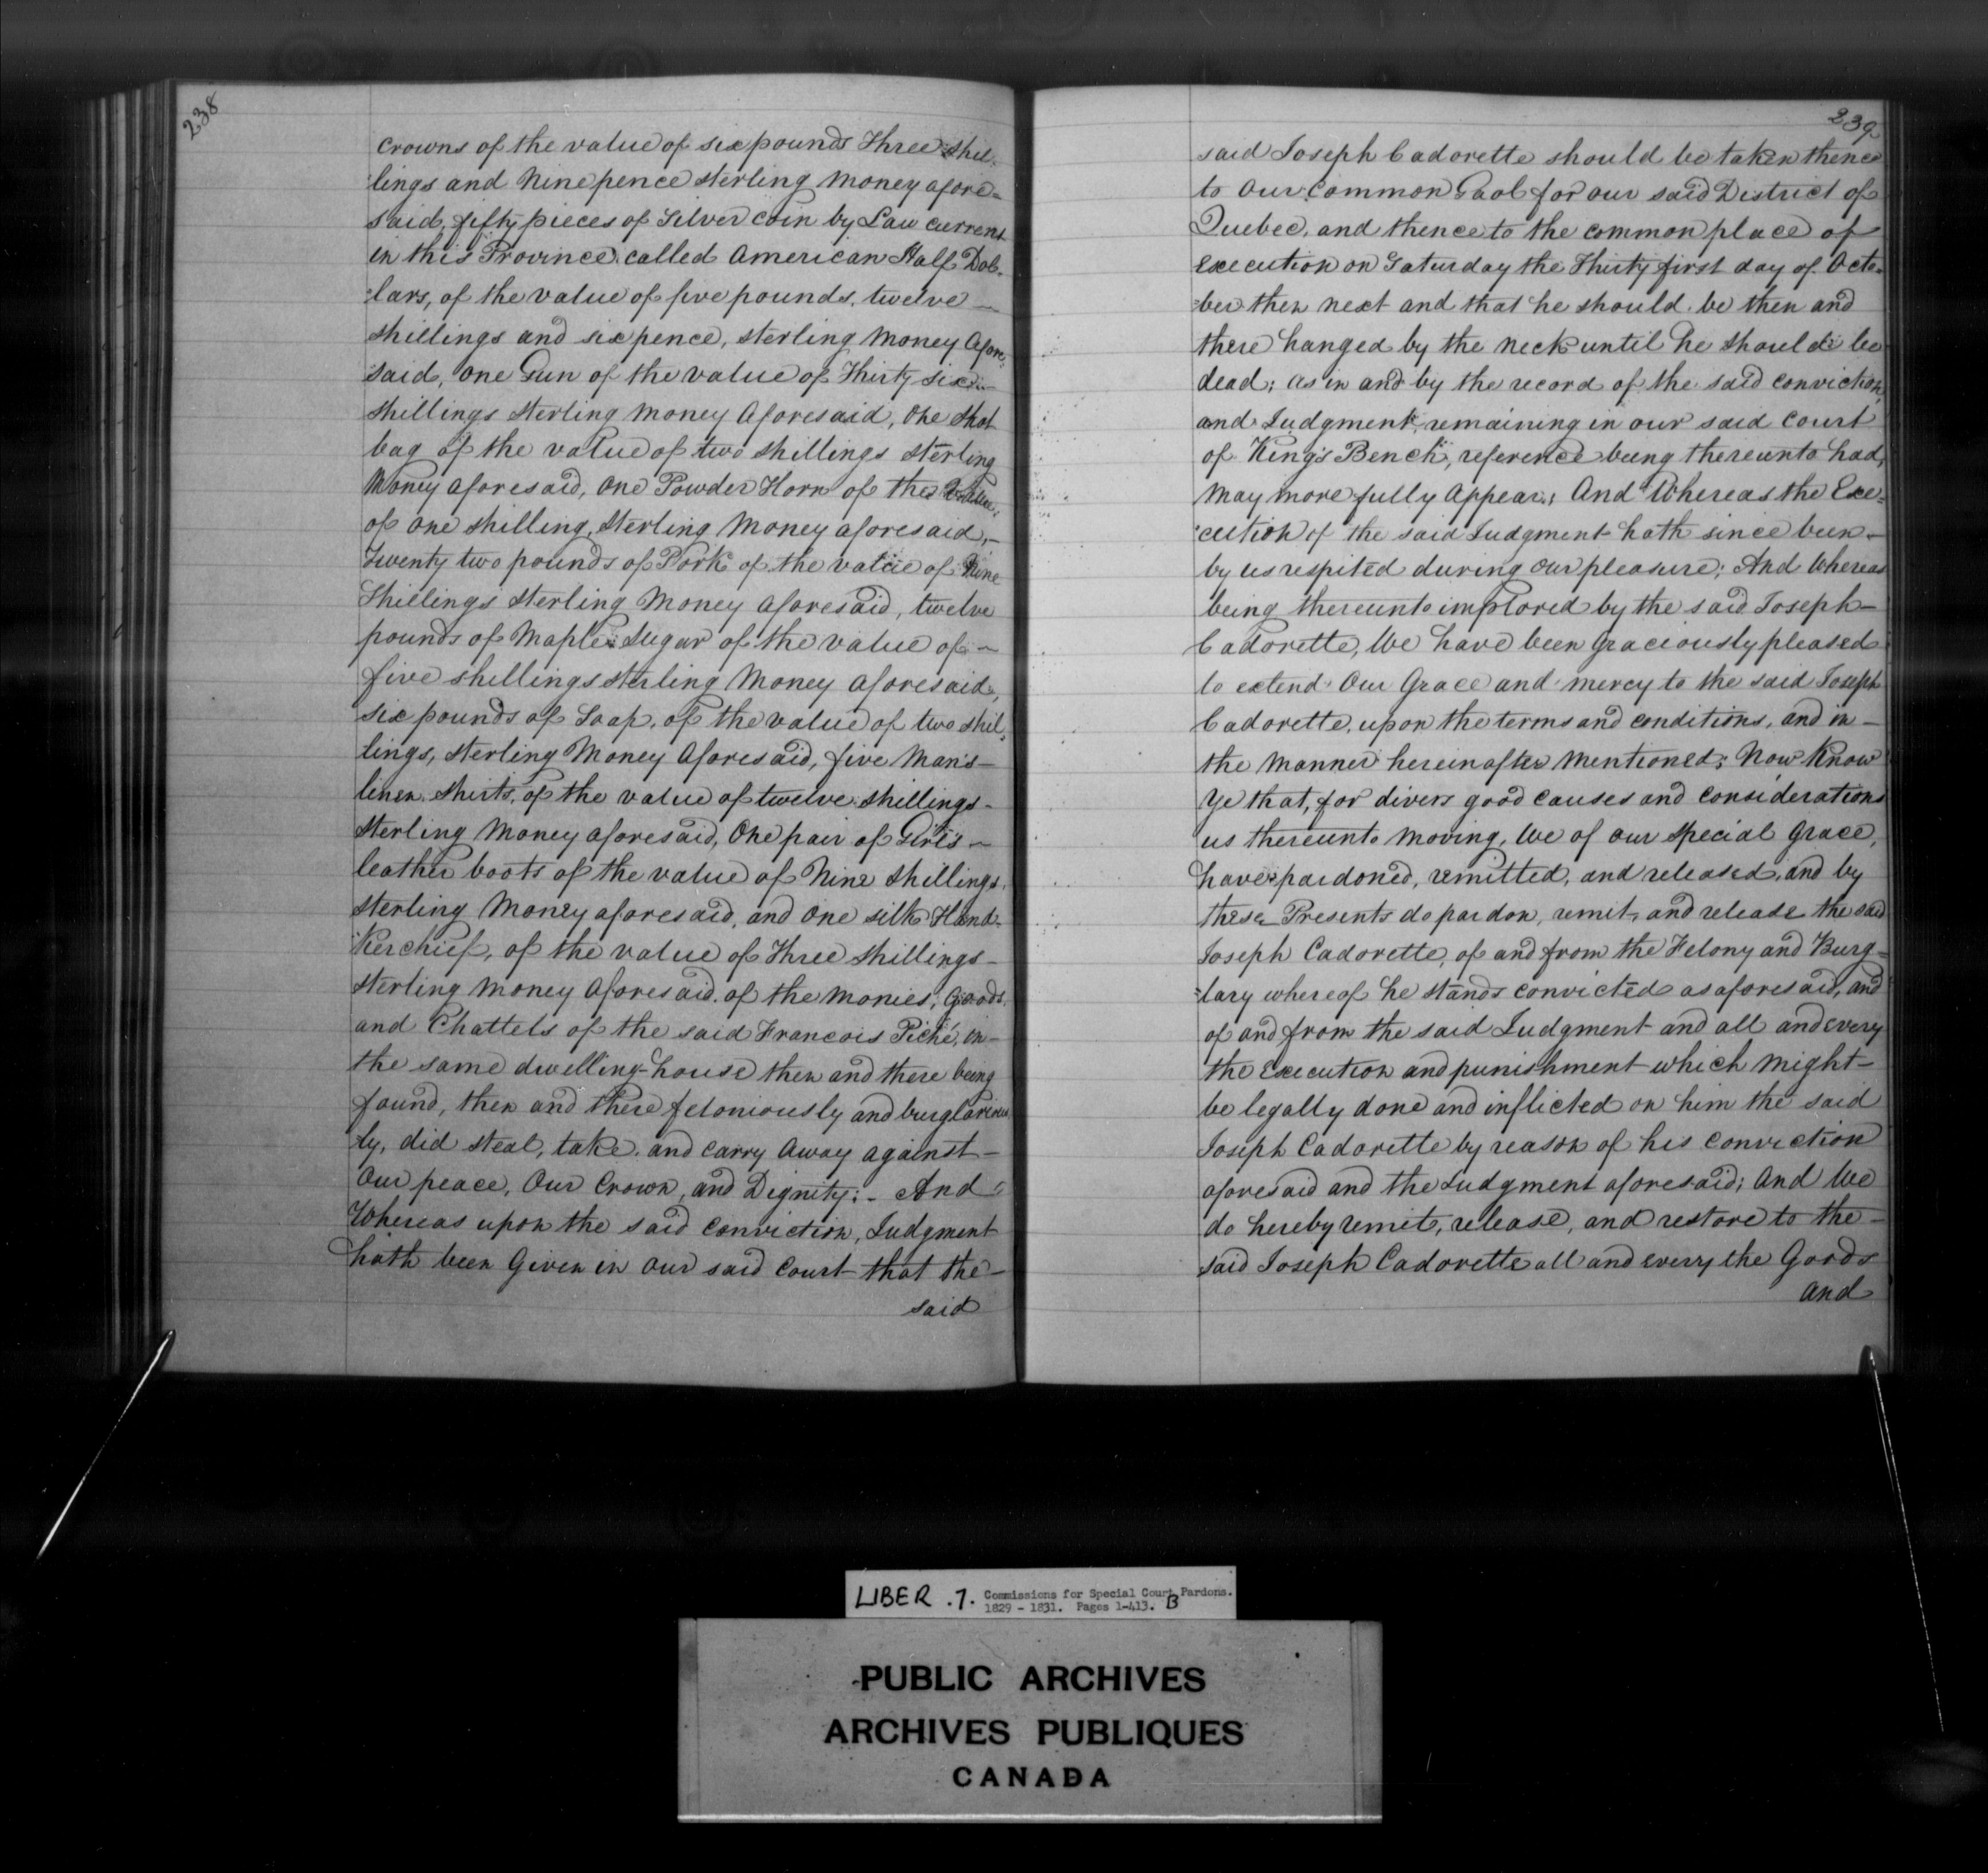 238
crowns of the value of six pounds Three shil-
lings and Nine pence sterling Money afore=
said, fifty pieces of Silver Coin by Law current
in this Province called American Half Dol-
lars, of the value of five pounds, twelve —
shillings and six pence, sterling Money Afore
said, one Gun of the value of Thirty six —
shillings sterling Money Aforesaid, One Shot
bag of the value of two shillings sterling
Money aforesaid, One Powder Horn of the Value
of one shilling, sterling Money aforesaid, —
Twenty two pounds of Pork of the value of Nine
Shillings sterling Money Aforesaid, twelve
pounds of Maple Sugar of the value of —
five shillings sterling Money aforesaid,
six pounds of Soap, of the value of two shil-
lings, sterling Money Aforesaid, five Man's —
linen shirts, of the value of twelve shillings —
sterling Money aforesaid, One pair of Girl's —
leather boots of the value of Nine shillings
sterling Money aforesaid, and One silk Hand-
Kerchief, of the value of Three shillings —
sterling Money Aforesaid of the Monies, Goods
and Chattels of the said Francois Piché, in —
the same dwelling-house then and there being
found, then and there feloniously and burglarious
ly, did steal, take and carry away against —
Our peace, Our Crown, and Dignity; - And
Whereas upon the said Conviction, Judgment
hath been Given in our said Court that the —
said
239
said Joseph Cadorette should be taken thence
to Our Common Gaol for our said District of
Quebec, and thence to the common place of
execution on Saturday the Thirty first day of Octo-
ber then next and that he should be then and
there hanged by the neck until he should be
dead; as in and by the record of the said conviction,
and Judgment remaining in our said court
of King's Bench, reference being thereunto had,
may more fully Appear; And Whereas the Exe=
cution of the said Judgment hath since been —
by us respited during our pleasure; And Whereas
being thereunto implored by the said Joseph —
Cadorette, We have been graciously pleased
to extend Our Grace and mercy to the said Joseph
Cadorette, upon the terms and conditions, and in —
the Manner hereinafter Mentioned; Now Know
Ye that, for divers good causes and considerations
us thereunto moving, We of our special Grace,
have pardoned, remitted, and released, and by
these Presents do pardon, remit, and release the said
Joseph Cadorette, of and from the Felony and Burg-
lary whereof he stands convicted as aforesaid, and
of and from the said Judgment and all and every
the Execution and punishment which might —
be legally done and inflicted on him the said
Joseph Cadorette by reason of his conviction
aforesaid and the Judgment aforesaid; And We
do hereby remit, release, and restore to the —
said Joseph Cadorette all and every the Goods
and
LIBER .7. Commissions for Special Court Pardons.
1829 - 1831. Pages 1-413. B
PUBLIC ARCHIVES
ARCHIVES PUBLIQUES
CANADA